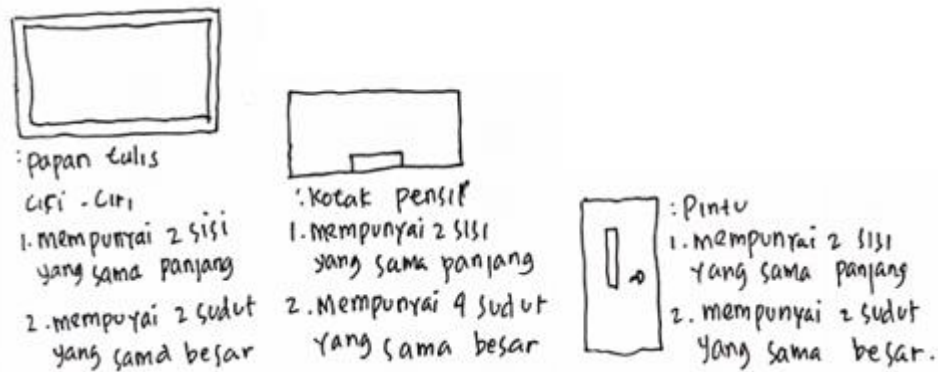 : papan tulis
ciri - ciri
1. mempunyai 2 sisi
yang sama panjang
2. mempuyai 2 sudut
yang sama besar
: kotak pensil
1. mempunyai 2 sisi
yang sama panjang
2. Mempunyai 4 sudut
yang sama besar
: Pintu
1. mempunyai 2 sisi
yang sama panjang
2. mempunyai 2 sudut
yang sama besar.